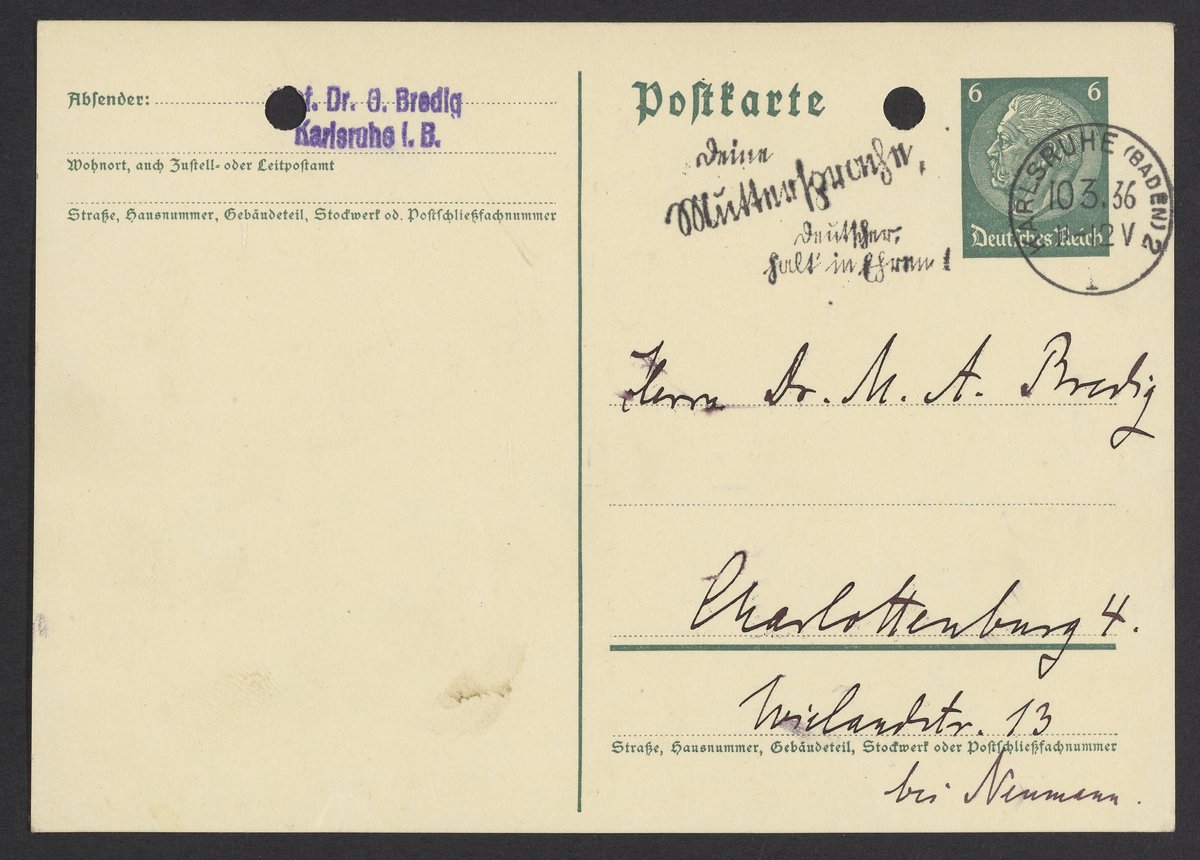 Absender: f. Dr. G. Bredig
Karlsruhe i. B.
Wohnort, auch Zustell- oder Leitpostamt
Straße, Hausnummer, Gebäudeteil, Stockwerk od. Postschließfachnummer
Postkarte
6 6
Deutsches Reich
KARLSRUHE (BADEN) 2
10 3. 36
12 V
Deine
Muttersprache,
Deutscher,
halt in Ehren!
Herrn Dr. M. A. Bredig
Charlottenburg 4.
Wielandstr. 13
Straße, Hausnummer, Gebäudeteil, Stockwerk oder Postschließfachnummer
bei Neumann.